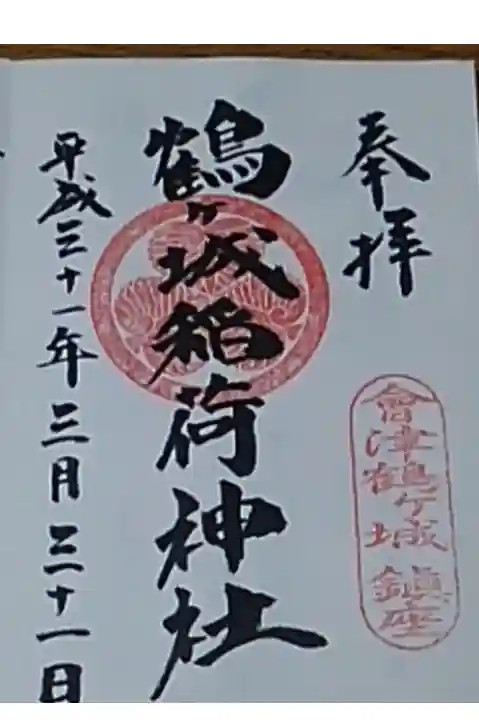 奉拝
會津鶴ヶ城鎮座
鶴ヶ城稲荷神社
平成三十一年三月三十一日